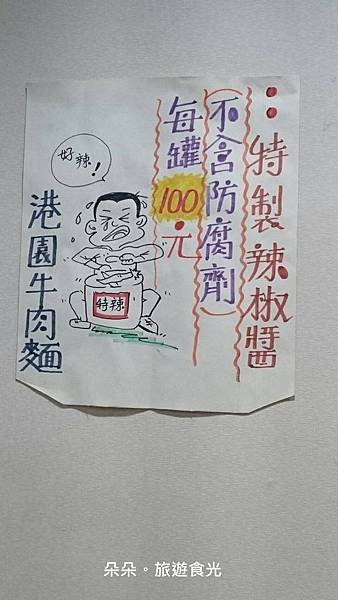 特製辣椒醬
(不含防腐劑)
每罐100元
好辣!
特辣
港園牛肉麵
朵朵。旅遊食光